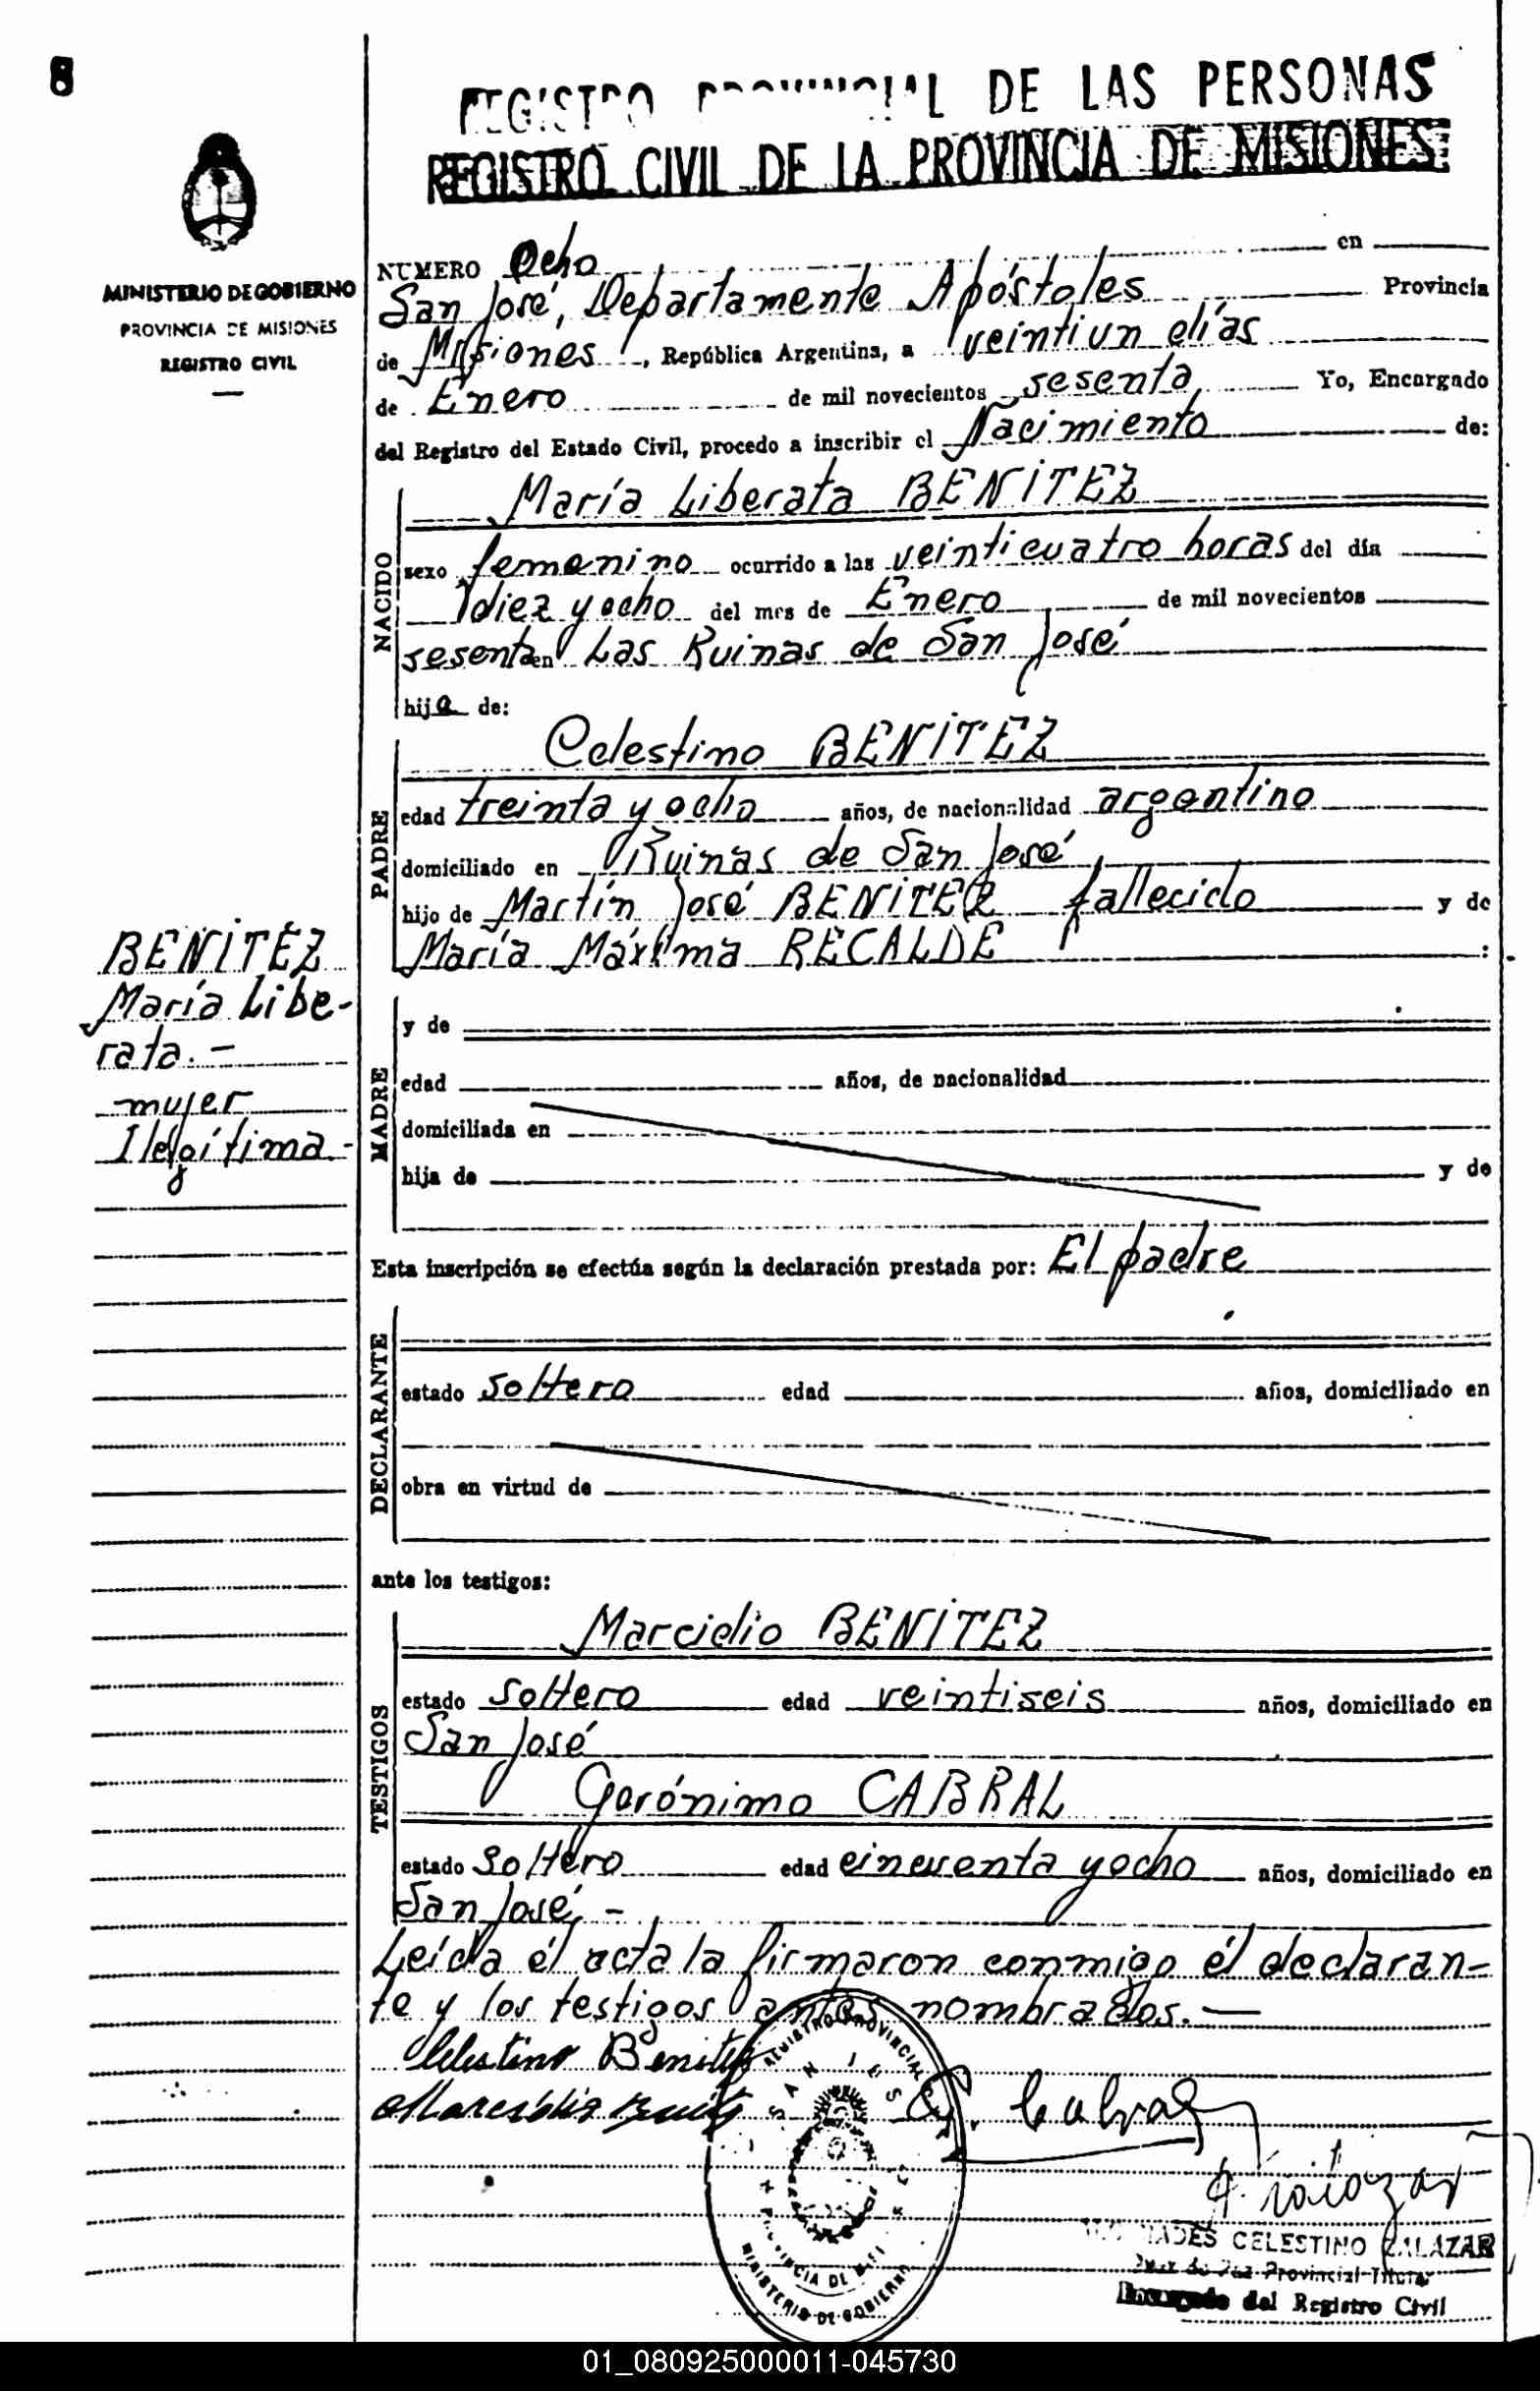 8
REGISTRO PROVINCIAL DE LAS PERSONAS
REGISTRO CIVIL DE LA PROVINCIA DE MISIONES
MINISTERIO DE GOBIERNO
PROVINCIA DE MISIONES
REGISTRO CIVIL
NUMERO Ocho en
San José, Departamente Apóstoles Provincia
de Misiones, República Argentina, a veintiun días
de Enero de mil novecientos sesenta Yo, Encargado
del Registro del Estado Civil, procedo a inscribir el Nacimiento de:
NACIDO
María Liberata BENITEZ
sexo femenino ocurrido a las veinticuatro horas del día
diez y ocho del mes de Enero de mil novecientos
sesenta en Las Ruinas de San José
hija de:
PADRE
Celestino BENITEZ
edad treinta y ocho años, de nacionalidad argentino
domiciliado en Ruinas de San José
hijo de Martín José BENITEZ fallecido y de
María Máxima RECALDE :
BENITEZ
María Libe-
rata.-
mujer
Ilegítima-
MADRE
y de
edad años, de nacionalidad
domiciliada en
hija de y de
Esta inscripción se efectúa según la declaración prestada por: El padre
DECLARANTE
estado Soltero edad años, domiciliado en
obra en virtud de
ante los testigos:
TESTIGOS
Marcidio BENITEZ
estado Soltero edad veintiseis años, domiciliado en
San José
Gerónimo CABRAL
estado Soltero edad cincuenta y ocho años, domiciliado en
San José.-
Leída él acta la firmaron conmigo él declaran-
te y los testigos antes nombrados.—
Celestino Benitez
G. Cabral
REGISTRO PROVINCIAL
SAN JOSE
PROVINCIA DE
MINISTERIO DE GOBIERNO
CELESTINO ZALAZAR
Juez de Paz Provincial Titular
Encargado del Registro Civil
01_080925000011-045730